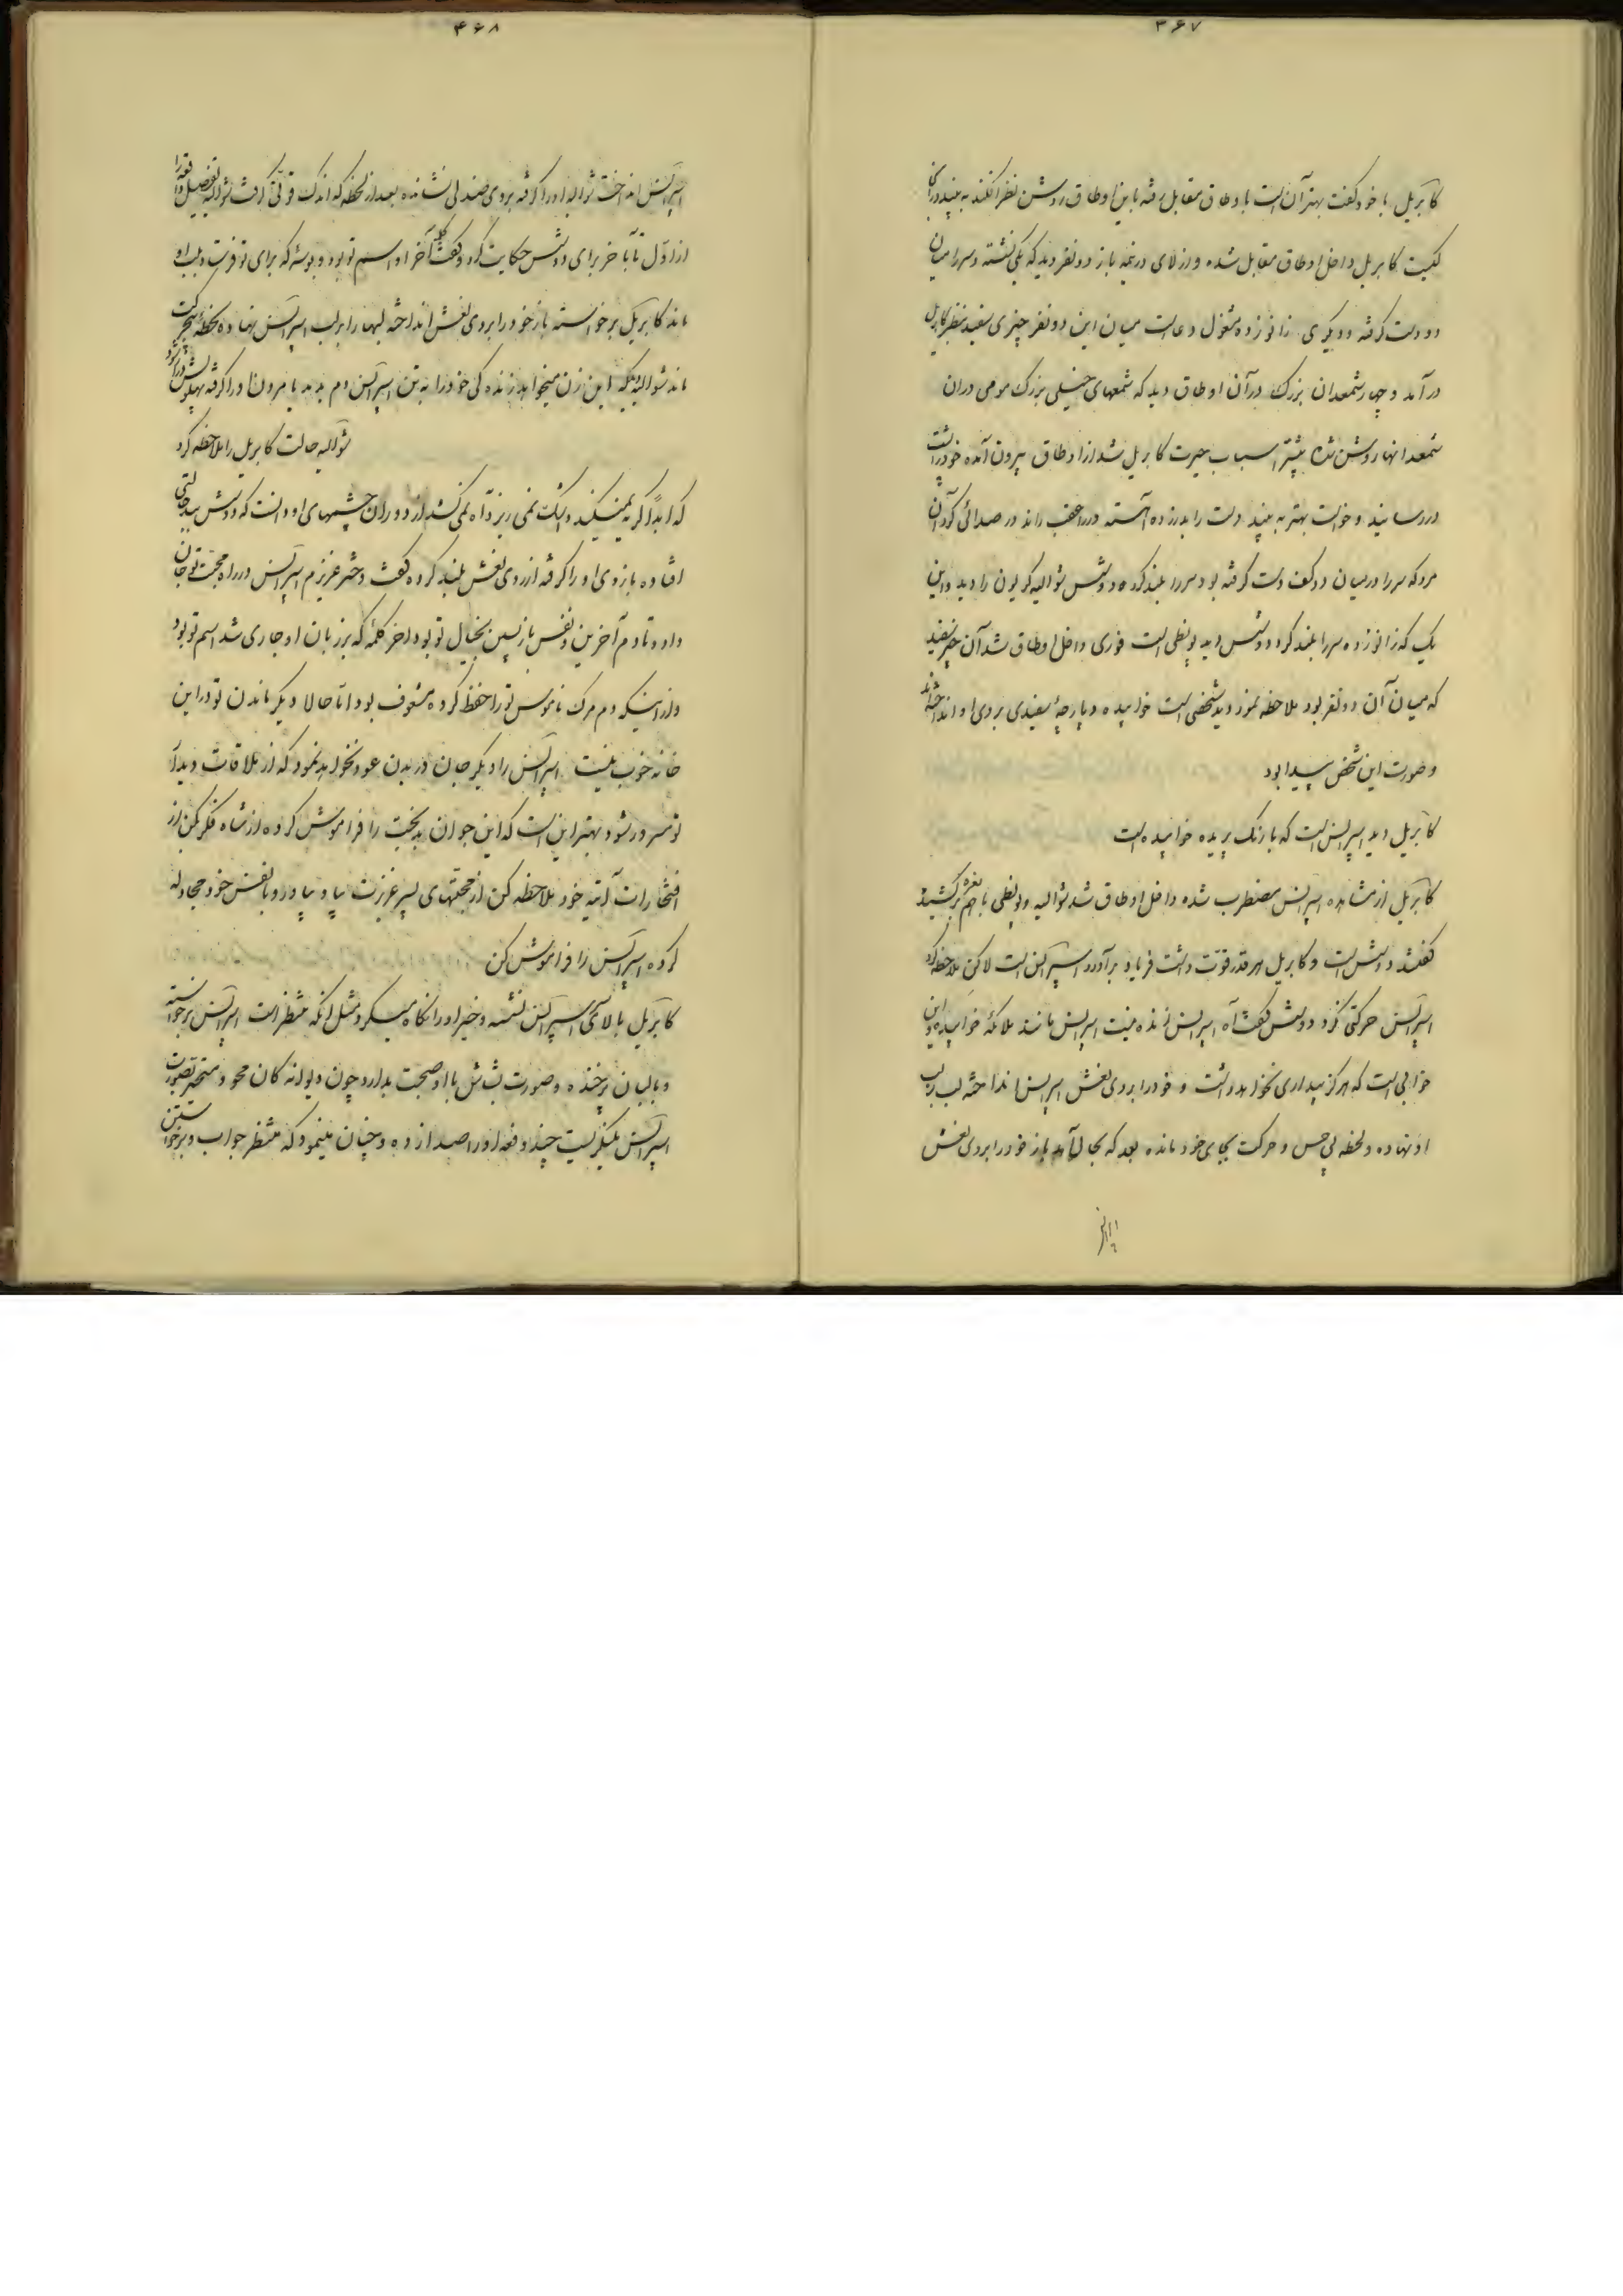 ۳۶۷
کابریل با خود گفت بهتر آن است باوطاق مقابل رفته باین اوطاق روشن نظر افکند به بیند در آنجا
کیست کابریل داخل اوطاق مقابل شده و از لای در نیمه باز دو نفر دید که یکی نشسته و سر را میان
دو دست گرفته و دیگری زانو زده مشغول دعاست میان این دو نفر چیزی سفید بنظر کابریل
در آمد و چهار شمعدان بزرگ در آن اوطاق دید که شمعهای خیلی بزرگ مومی در آن
شمعدانها روشن شده بیشتر اسباب حیرت کابریل شد از اوطاق بیرون آمده خود را پشت
در رسانید و خواست بهتر به بیند دست را بدر زده آهسته در را عقب راند در صدائی کرد آن
مرد که سر را در میان دو کف دست گرفته بود سر را بلند کرده دوشس شوالیه کریون را دید و این
یک که زانو زده سر را بلند کرد دوشس دید بونظی است فوری داخل اوطاق شد آن چیز سفید
که میان آن دو نفر بود ملاحظه نمود دید شخصی است خوابیده و پارچهٔ سفیدی بر روی او انداخته‌اند
و صورت این شخص پیدا بود
کابریل دید اسپرانس است که با رنگ پریده خوابیده است
کابریل از مشاهده اسپرانس مضطرب شده داخل اوطاق شد شوالیه و بونظی با هم نعره برکشیده
گفتند دوشس است و کابریل هر قدر قوت داشت فریاد برآورد اسپرانس است لاکن ملاحظه کرد
اسپرانس حرکتی نکرد دوشس گفت آه اسپرانس زنده نیست اسپرانس مانند ملائکه خوابیده و این
خوابی است که هرگز بیداری نخواهد داشت و خود را بروی نعش اسپرانس انداخته لب بر لب
او نهاده و لحظه بی حس و حرکت بجای خود مانده بعد که بحال آمد باز خود را بروی نعش
۴۶۸
اسپرانس انداخت شوالیه او را گرفته بروی صندلی نشانده بعد از لحظه که اندک قوتی گرفت شوالیه تفصیل واقعه را
از اول تا بآخر برای دوشس حکایت کرد و گفت کلمه آخر او اسم تو بود و بوسه که برای تو فرستاد بلب او
ماند کابریل برخواسته باز خود را بروی نعش انداخته لبها را بر لب اسپرانس نهاده لحظهٔ بیحرکت
ماند شوالیه اینکه این زن میخواهد زندگی خود را به تن اسپرانس دم بدمد یا مرون او را گرفته
شوالیه حالت کابریل را ملاحظه کرد
که ابداً گریه نمیکند و اشک نمی ریزد آه نمی کشد از دوران چشمهای او دانست که دوشس بیدحالتی
افتاده بازوی او را گرفته از روی نعش بلند کرده گفت دختر عزیزم اسپرانس در راه محبت تو جان
داد و تا دم آخرین و نفس بازپسین بخیال تو بود و آخر کلمهٔ که بر زبان او جاری شد اسم تو بود
و از اینکه دم مرگ ناموس تو را حفظ کرده مشعوف بود اما حالا دیگر ماندن تو در این
خانه خوب نیست اسپرانس را دیگر جان در بدن عود نخواهد نمود که از ملاقات و دیدار
تو مسرور شود بهتر این است که این جوان بدبخت را فراموش کرده از شاه فکر کن از
افتخارات آتیه خود ملاحظه کن از محبتهای پسر عزیزت بیاد بیاور و با نفس خود مجادله
کرده اسپرانس را فراموش کن
کابریل بالای سر اسپرانس نشسته و خیره او را نگاه میکرد مثل آنکه منتظر است اسپرانس برخواسته
و با لبان پر خنده و صورت بشاش با او صحبت بدارد چون دیوانه گان محو و متحیر بصورت
اسپرانس مینگریست چند دفعه او را صدا زده و چنان مینمود که منتظر جواب و برخواستن